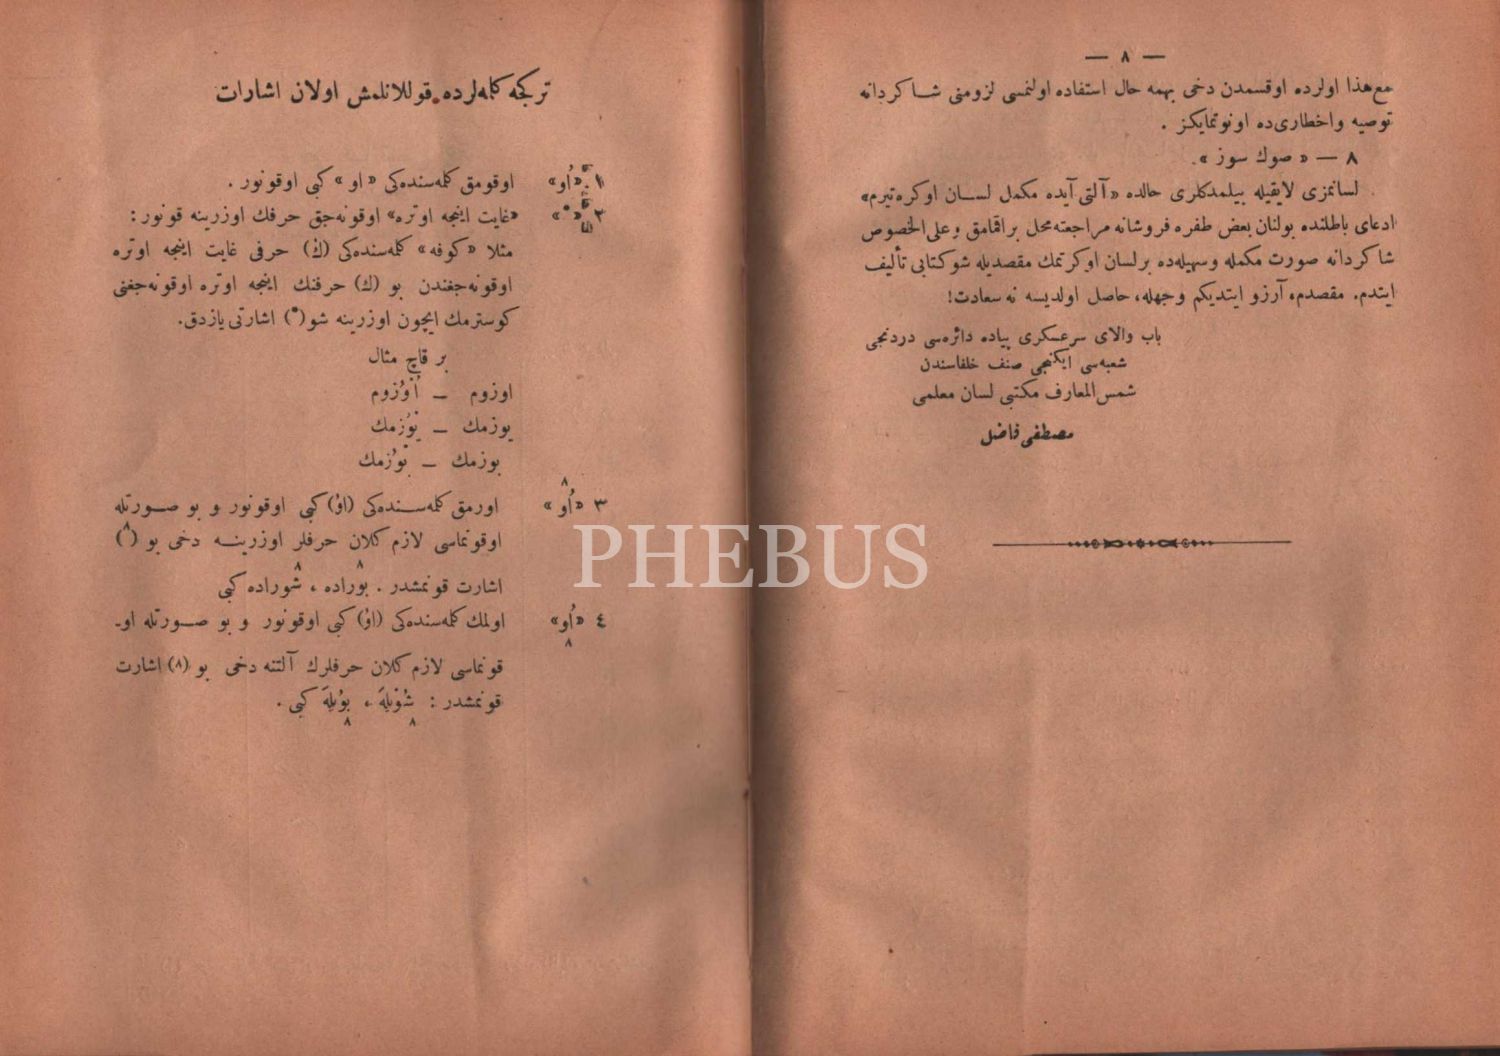 — ٨ —
مع هذا اولرده اوقسمدن دخی بهمه حال استفاده اولنمسی لزومنی شاكردانه
توصیه واخطاری‌ده اونوتمایكز .
٨ — « صوك سوز ».
لسانمزی لایقیله بیلمدكلری حالده «آلتی آیده مكمل لسان اوكره‌تیرم»
ادعای باطلنده بولنان بعض طفره فروشانه مراجعته محل براقمامق وعلی الخصوص
شاكردانه صورت مكمله وسهیله‌ده برلسان اوكرتمك مقصدیله شوكتابی تألیف
ایتدم. مقصدم، آرزو ایتدیكم وجهله، حاصل اولدیسه نه سعادت!
باب والای سرعسكری پیاده دائره‌سی دردنجی
شعبه‌سی ایكنجی صنف خلفاسندن
شمس المعارف مكتبی لسان معلمی
مصطفی فاضل
تركجه كلمه‌لرده قوللانلمش اولان اشارات
١ «اُو» اوقومق كلمه‌سنده‌كی «او» كبی اوقونور .
٢ «غایت اینجه اوتره» اوقونه‌جق حرفك اوزرینه قونور :
مثلا «كوفه» كلمه‌سنده‌كی (ك) حرفی غایت اینجه اوتره
اوقونه‌جغندن بو (ك) حرفنك اینجه اوتره اوقونه‌جغنی
كوسترمك ایچون اوزرینه شو(ْ) اشارتی یازدق.
بر قاچ مثال
اوزوم — اُوْزوم
یوزمك — یُوْزمك
بوزمك — بُوْزمك
٣ «اُو» اورمق كلمه‌سنده‌كی (اوُ) كبی اوقونور و بو صورتله
اوقونماسی لازم كلان حرفلر اوزرینه دخی بو (٨)
اشارت قونمشدر . بوراده ، شوراده كبی
٤ «اُو» اولمك كلمه‌سنده‌كی (اوُ) كبی اوقونور و بو صورتله او-
قونماسی لازم كلان حرفلرك آلتنه دخی بو (٨) اشارت
قونمشدر : شُوْیله ، بوُیله كبی .
PHEBUS